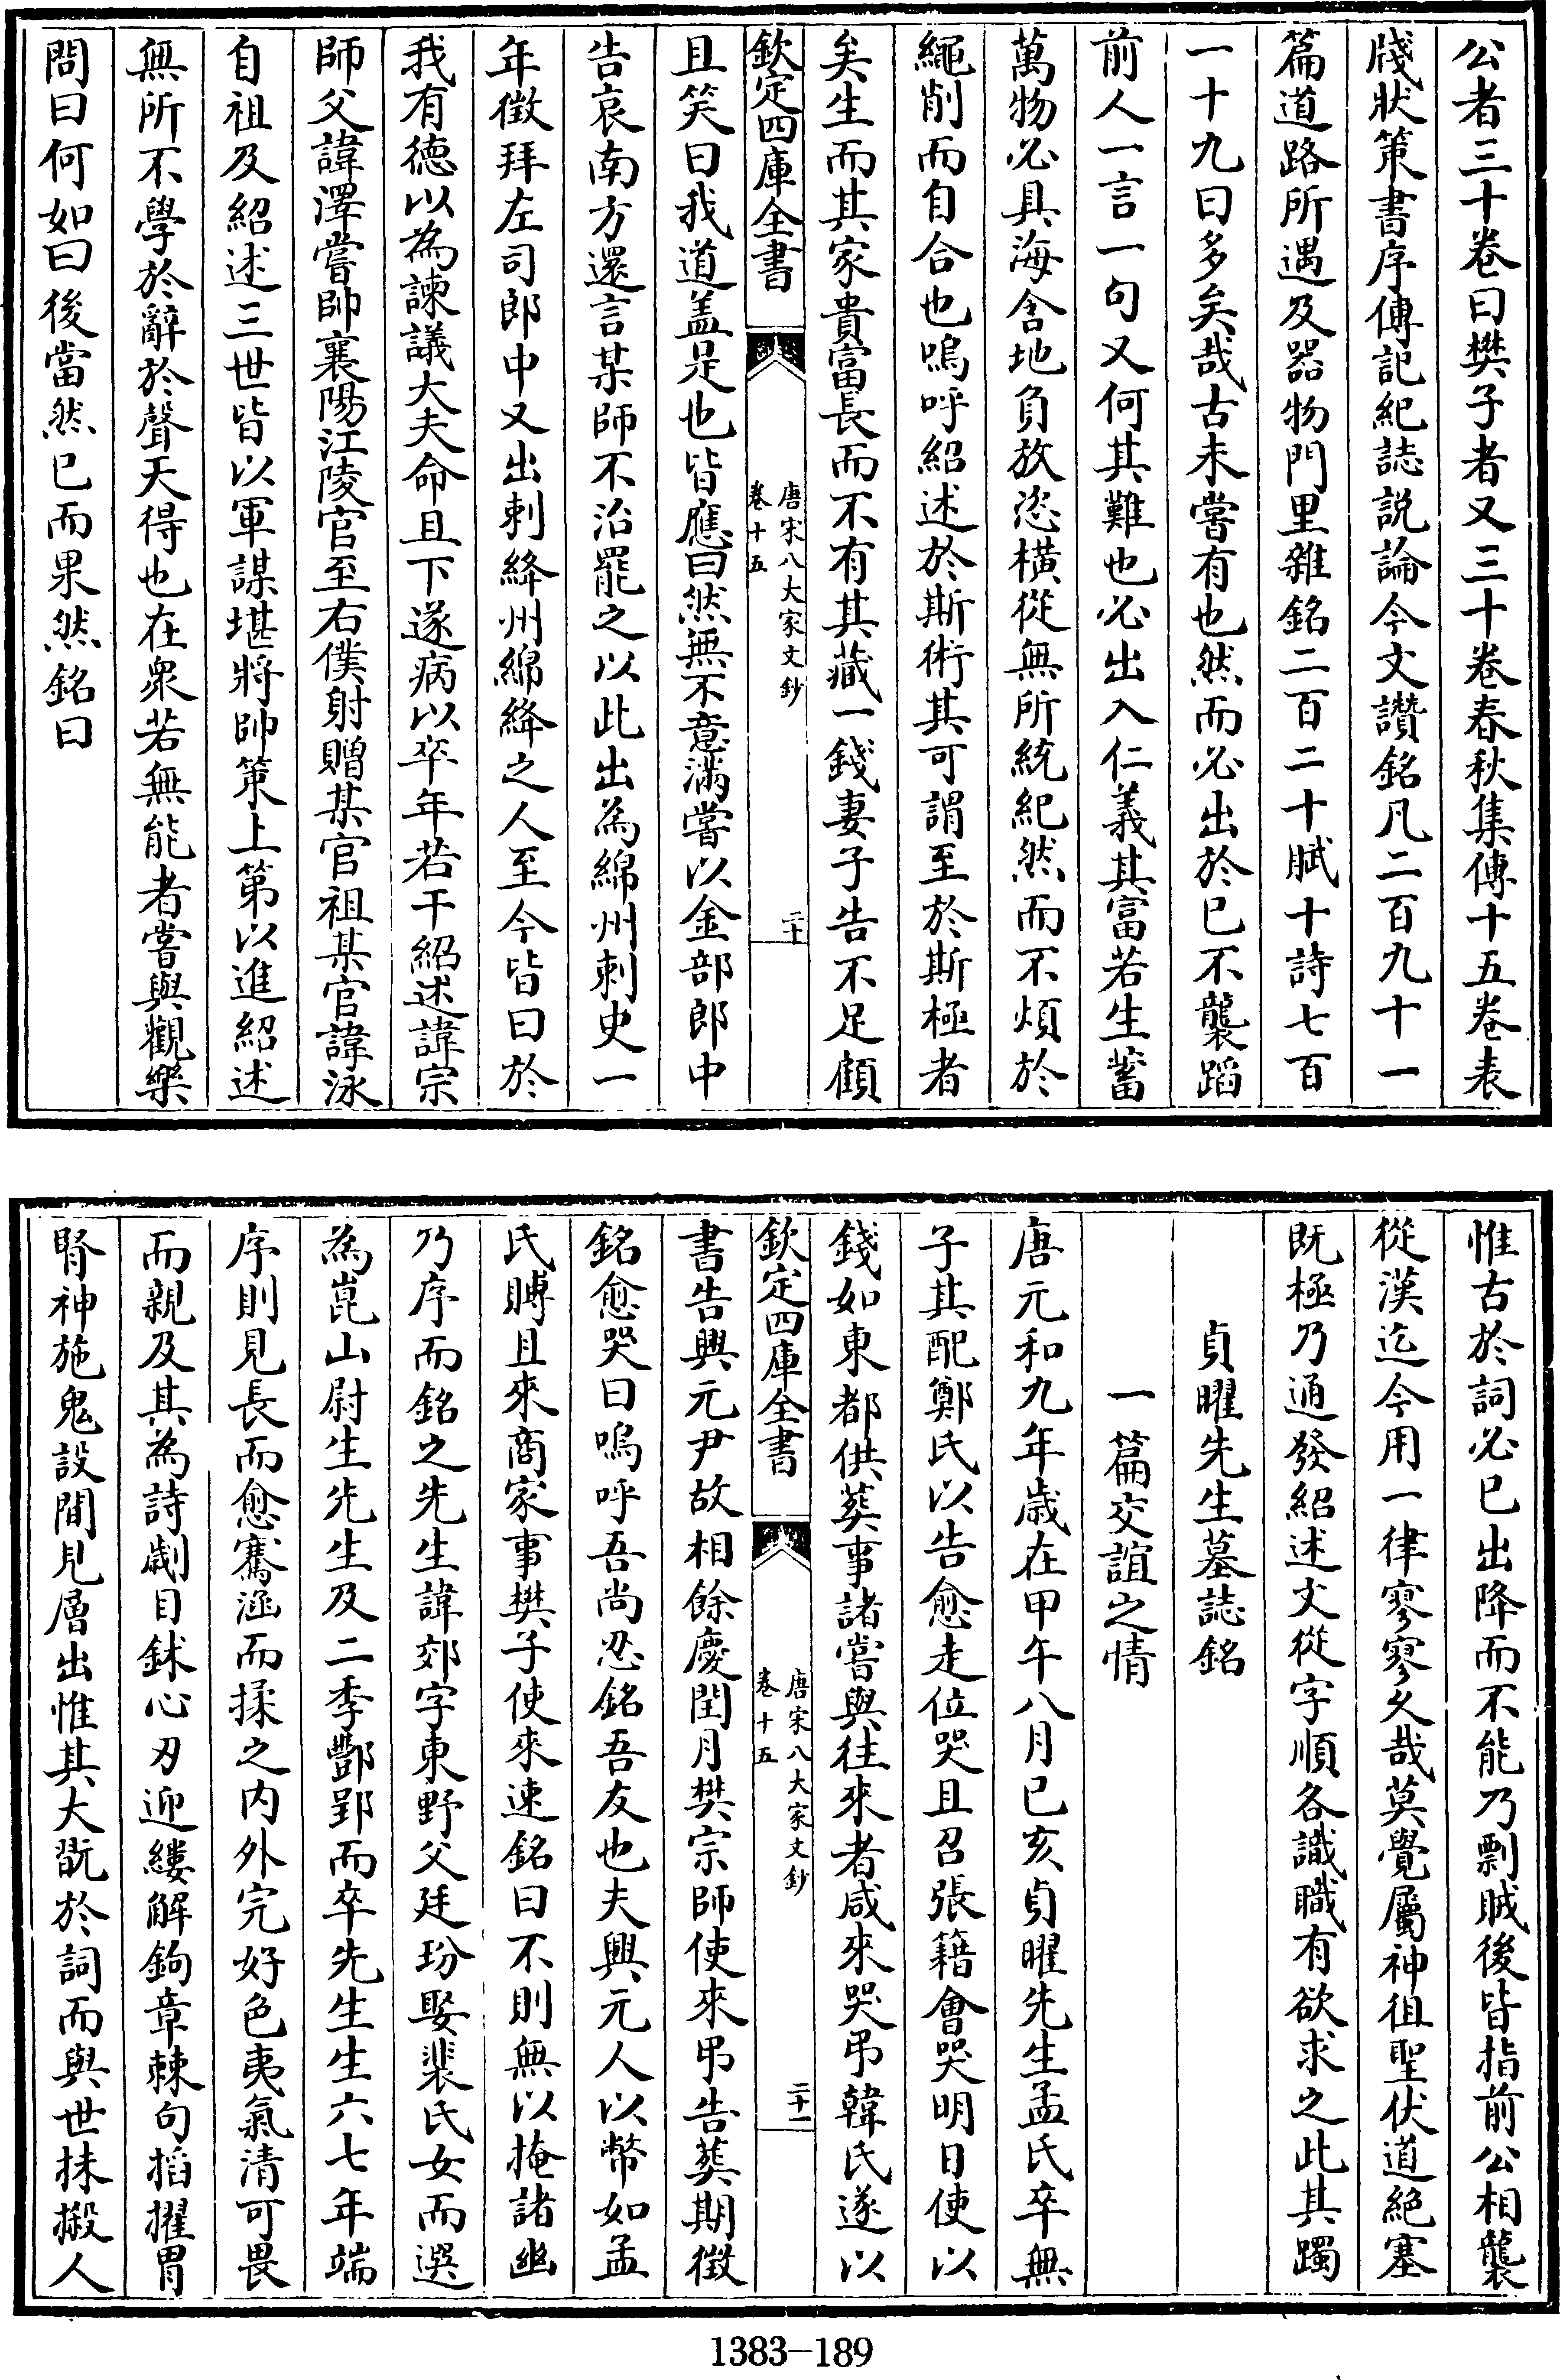 公者三十卷曰樊子者又三十卷春秋集傳十五卷表
牋狀策書序傳記紀誌説論今文讃銘凡二百九十一
篇道路所遇及器物門里雜銘二百二十賦十詩七百
一十九曰多矣哉古未嘗有也然而必出於已不襲蹈
前人一言一句又何其難也必出入仁義其富若生蓄
萬物必具海含地負放恣横從無所統紀然而不煩於
繩削而自合也嗚呼紹述於斯術其可謂至於斯極者
矣生而其家貴富長而不有其藏一錢妻子告不足顧
欽定四庫全書
唐宋八大家文鈔
卷十五
二十
且笑曰我道盖是也皆應曰然無不意滿嘗以金部郎中
告哀南方還言某師不治罷之以此出為綿州刺史一
年徵拜左司郎中又出刺絳州綿絳之人至今皆曰於
我有德以為諫議大夫命且下遂病以卒年若干紹述諱宗
師父諱澤嘗帥襄陽江陵官至右僕射贈某官祖某官諱泳
自祖及紹述三世皆以軍謀堪將帥策上第以進紹述
無所不學於辭於聲天得也在衆若無能者嘗與觀樂
問曰何如曰後當然已而果然銘曰
惟古於詞必已出降而不能乃剽賊後皆指前公相襲
從漢迄今用一律寥寥久哉莫覺屬神徂聖伏道絕塞
既極乃通發紹述文從字順各識職有欲求之此其躅
貞曜先生墓誌銘
一篇交誼之情
唐元和九年歳在甲午八月已亥貞曜先生孟氏卒無
子其配鄭氏以告愈走位哭且召張籍會哭明日使以
錢如東都供葬事諸嘗與往來者咸來哭弔韓氏遂以
欽定四庫全書
唐宋八大家文鈔
卷十五
二十一
書告興元尹故相餘慶閏月樊宗師使來弔告葬期徴
銘愈哭曰嗚呼吾尚忍銘吾友也夫興元人以幣如孟
氏賻且來商家事樊子使來速銘曰不則無以掩諸幽
乃序而銘之先生諱郊字東野父廷玢娶裴氏女而選
為崑山尉生先生及二季酆郢而卒先生生六七年端
序則見長而愈騫涵而揉之内外完好色夷氣清可畏
而親及其為詩劌目鉥心刃迎縷解鉤章棘句掐擢胃
腎神施鬼設間見層出惟其大翫於詞而與世抹摋人
1383-189